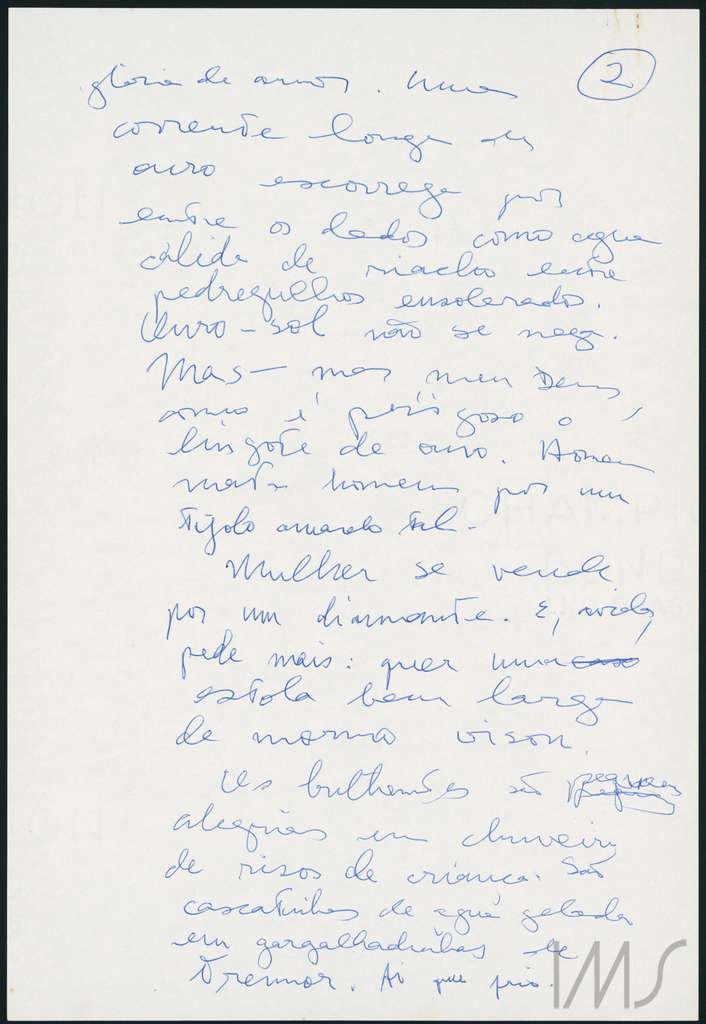 glória de amor. Uma
2
corrente longa de
ouro escorrega por
entre os dedos como água
cálida de riacho entre
pedregulhos ensolarados.
Ouro-sol não se nega.
Mas - mas meu Deus,
como é perigoso o
lingote de ouro. Homem
mata homem por um
tijolo amarelo tal.
Mulher se vende
por um diamante. E, ávida,
pede mais: quer uma
estola bem larga
de morno vison.
Os brilhantes são pequenas
alegrias em chuveiro
de risos de criança. São
cascatinhas de água gelada
em gargalhadinhas de
tremor. Ai que frio.
IMS